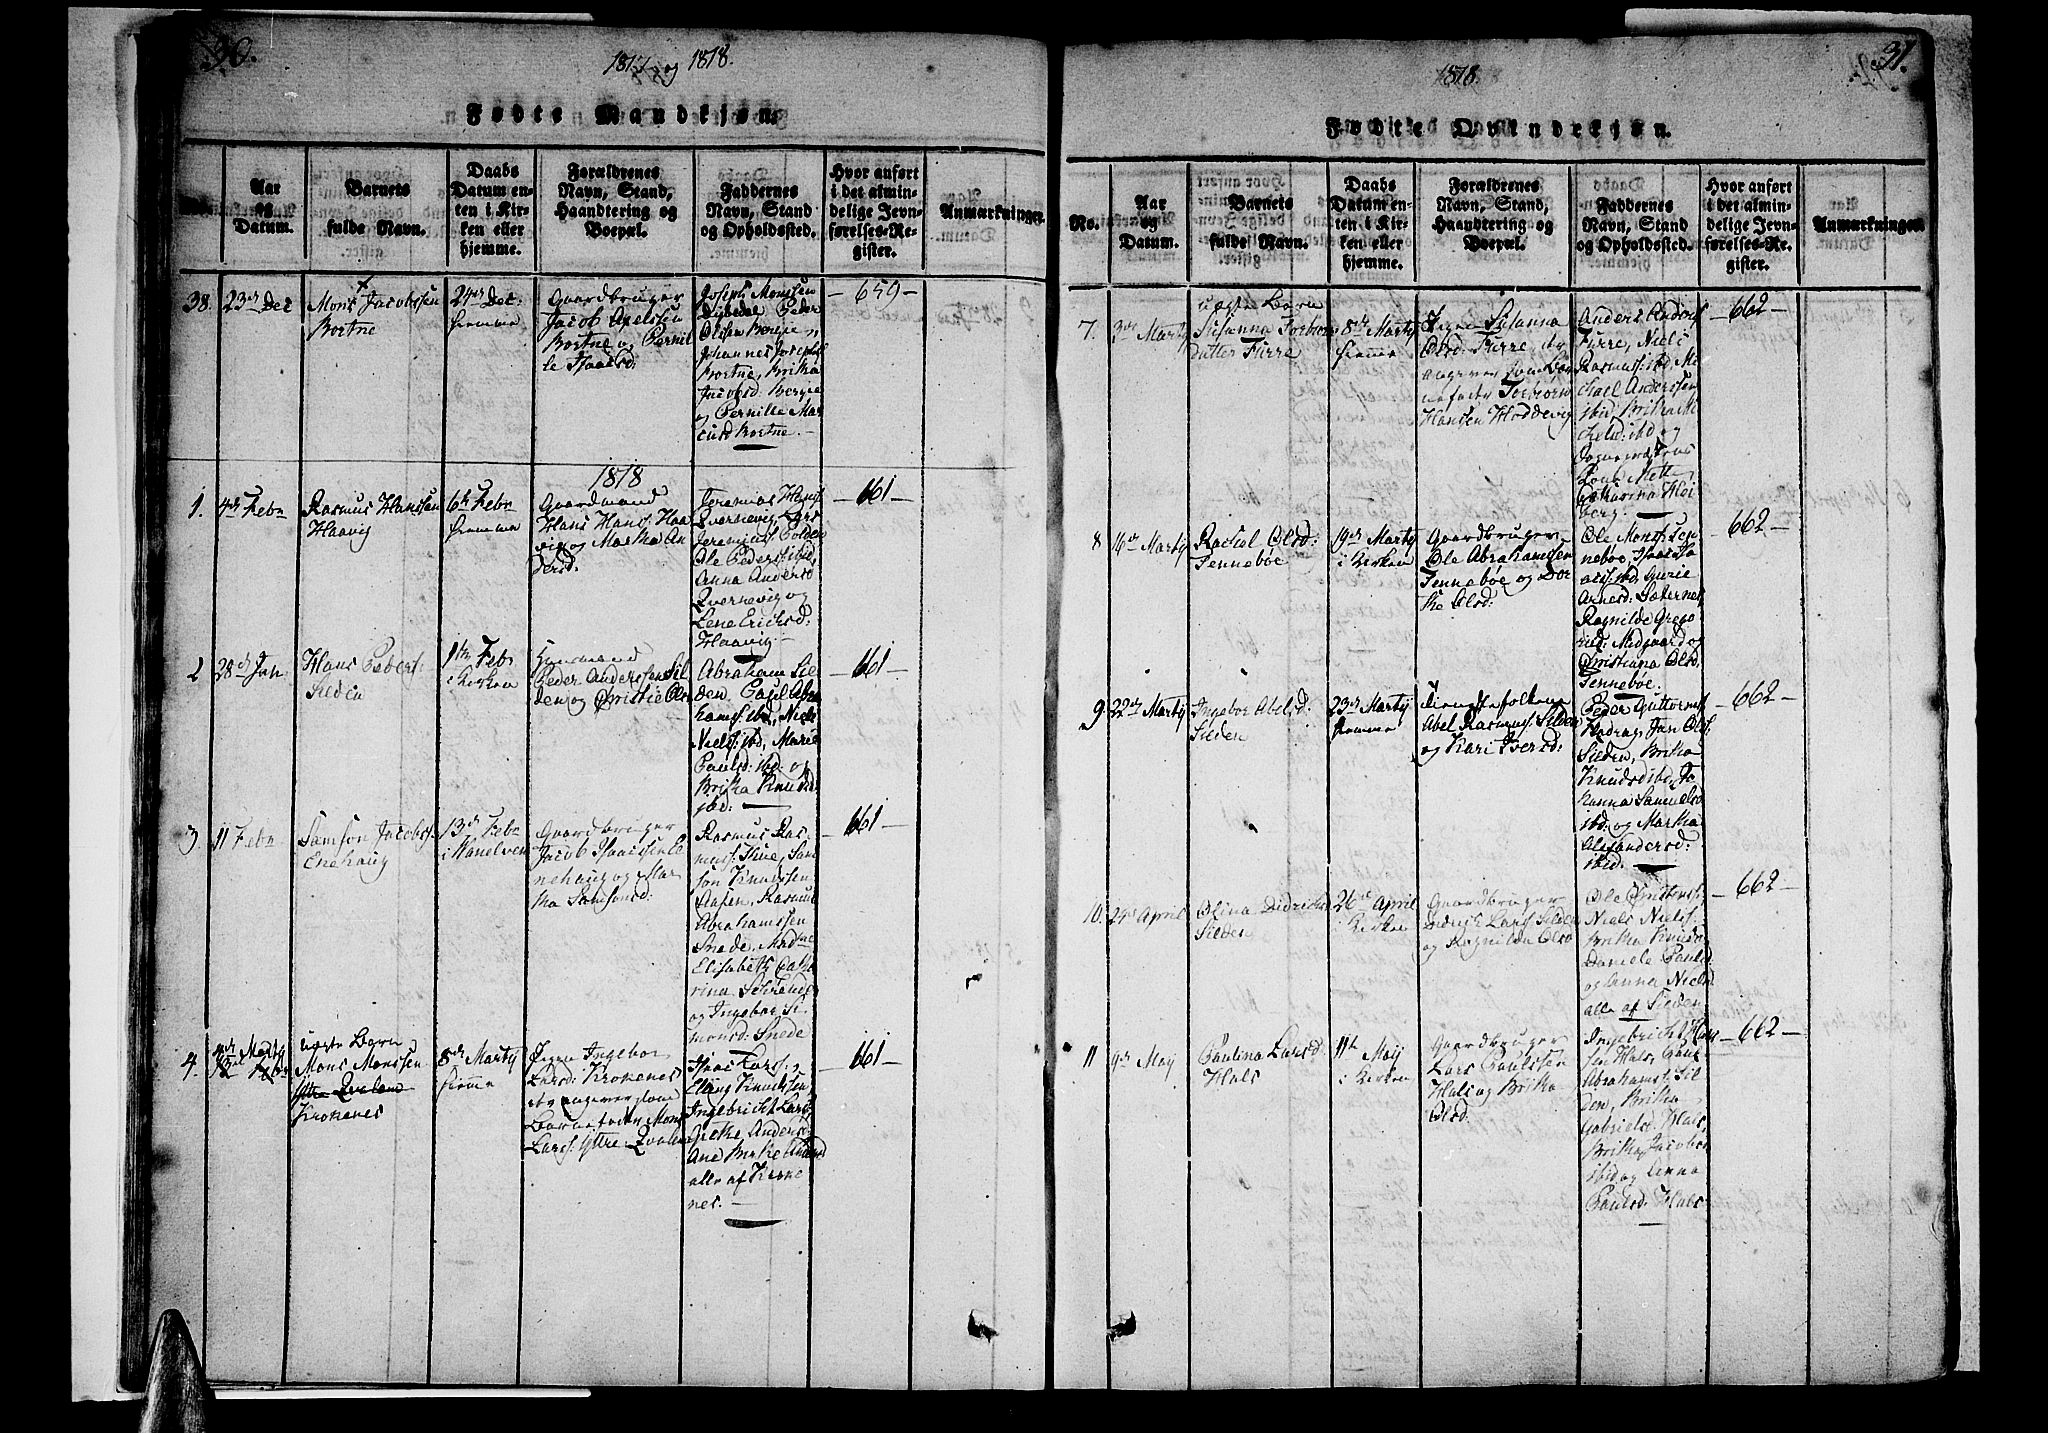 30.
1817 og 1818.
Fødte Mandkjøn.
Aar og Datum.
Barnets fulde Navn.
Daabs Datum enten i Kirken eller hjemme.
Forældrenes Navn, Stand, Haandtering og Boepæl.
Faddernes Navn, Stand og Opholdssted.
Hvor anført i det almindelige Jevnførelses-Register.
Anmærkninger.
38.
23de Dec
Mons Jacobssen
Bortne
24de Dec:
hjemme
Gaardbruger
Jacob Axelssen
Bortne og Pernil
le Isaacsd:
Joseph Monssen
Peder
Olsen Berge,
Johannes Josephs
Bortne, Britha
Jacobsd: Berge
og Pernille Mar
cusd Bortne.
— 659 —
1818
1.
4de Febr
Rasmus Hanssen
Haavig
6te Febr
hjemme
Gaardmand
Hans Hans: Haa
vig og Martha An
dersd:
Jeremias Hans:
Qvernevig, Lars
Jeremiass: Colden
Ole Peders: ibid,
Anna Andersd
Qvernevig og
Lene Ericksd:
Haavig —
— 661 —
2
28de Jan
Hans Peders:
Silden
1te Febr
i Kirken
Peder Anderssen Sil
den og Christie Ols
Abraham Sil
den, Paul Abra
hams: ibd, Niels
Niels: ibd, Marie
Paulsd: ibd: og
Britha Knudsd
ibd:
— 661 —
3.
11 Febr
Samson Jacobs:
Enehaug
13de Febr
Gaardbruger
Jacob Isaacssen E
nehaug og Mar
tha Samsonsd:
Rasmus Ras
mus: Hue, Sam
son Knudssen
Aasen, Rasmus
Abrahamssen
Snede, Madme
Elisabeth Catha
rina Schrøder
og Ingebor Si
monsd: Snede
— 661 —
4.
4de Marty
uægte Barn
Mons Monssen
Ytre Qvalen
Krokenes
8de Marty
hjemme
Pigen Ingebor
Larsd: Krokenes
der angiver som
Barnefader Mons
Lars: Ytre Qvalen
Isaac Lars:,
Elling Knudssen
Ingebricht Lars:
Grethe Andersd
Ane Birthe
alle af Kroke
nes. —
— 661 —
31.
1818.
Fødte Qvindekjøn.
No.
Aar og Datum.
Barnets fulde Navn.
Daabs Datum enten i Kirken eller hjemme.
Forældrenes Navn, Stand, Haandtering og Boepæl.
Faddernes Navn, Stand og Opholdssted.
Hvor anført i det almindelige Jevnførelses-Register.
Anmærkninger.
7.
3de Marty
uægte Barn
Susanna Torbiørns
datter Furre
8de Marty
hjemme
Pigen Susanna
Olsd: Furre, der
angiver som Bar
nefader Torbiørn
Hansen Hoddevig
Anders Andors:
Furre, Niels
Rasmus: ibd, Mi
chael Anderssen
ibid, Britha Mi
chelsd: ibd og
Mette
Catharina Hei
berg. —
— 662 —
8
16de Marty
Rachel Olsd:
Tennebøe
19de Marty
i Kirken
Gaardbruger
Ole Abrahamsen
Tennebøe og Dor
the Olsd:
Ole Mons: Ten
nebøe, Isaac Isa
acs: ibd, Gurie
Arnesd: Sæternes,
Ragnilde Grego
riisd: Midgaard og
Christiana Olsd.
Tennebøe:
— 662 —
9
22de Marty
Ingebor Abelsd:
Silden
23de Marty
hjemme
Tienestefolkene
Abel Rasmus: Silden
og Kari Iversd:
Peder Guttorms:
Hadrag, Jan Ols:
Silden, Britha
Knudsd ibd, Jo
hanna Samuelsd
ibd: og Martha
Alexandersd:
ibid.
— 662 —
10.
24de April
Olina Didrichsd
Silden
26de April
i Kirken
Gaardbruger
Didrich Lars: Silden
og Ragnilda Olsd
Ole Christens:
Niels Niels:
Britha Knudsd
Daniele Paulsd
og Anna Nielsd
alle af Silden
— 662 —
11
9de May
Paulina Larsd:
Hals
11te May
i Kirken
Gaardbruger
Lars Paulssen
Hals og Britha
Olsd.
Ingebricht Hans
sen Hals, Paul
Abrahams: Sil
den, Britha
Gabrielsd: Hals,
Britha Jacobsd
ibid og Anna
Paulsd: Hals
— 662 —